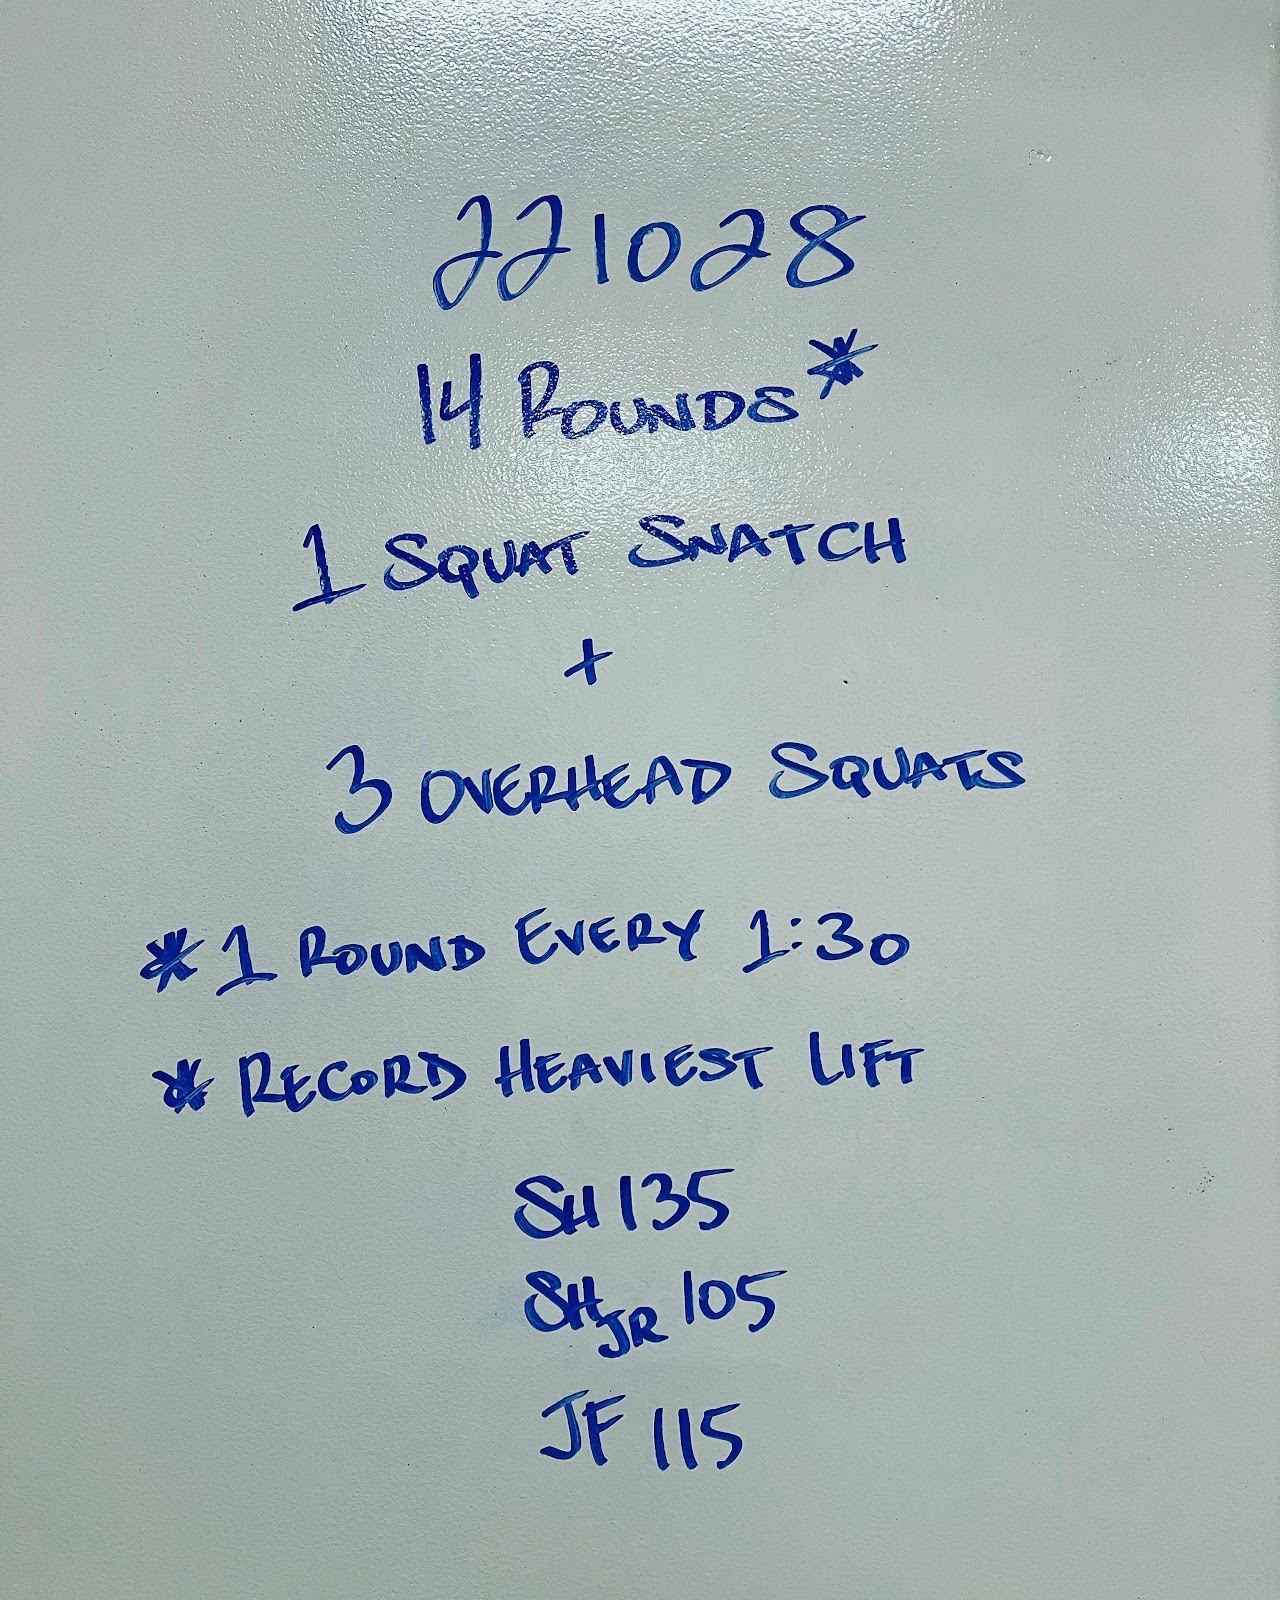 221028
14 ROUNDS*
1 SQUAT SNATCH
+
3 OVERHEAD SQUATS
* 1 ROUND EVERY 1:30
* RECORD HEAVIEST LIFT
SH 135
SH JR 105
JF 115